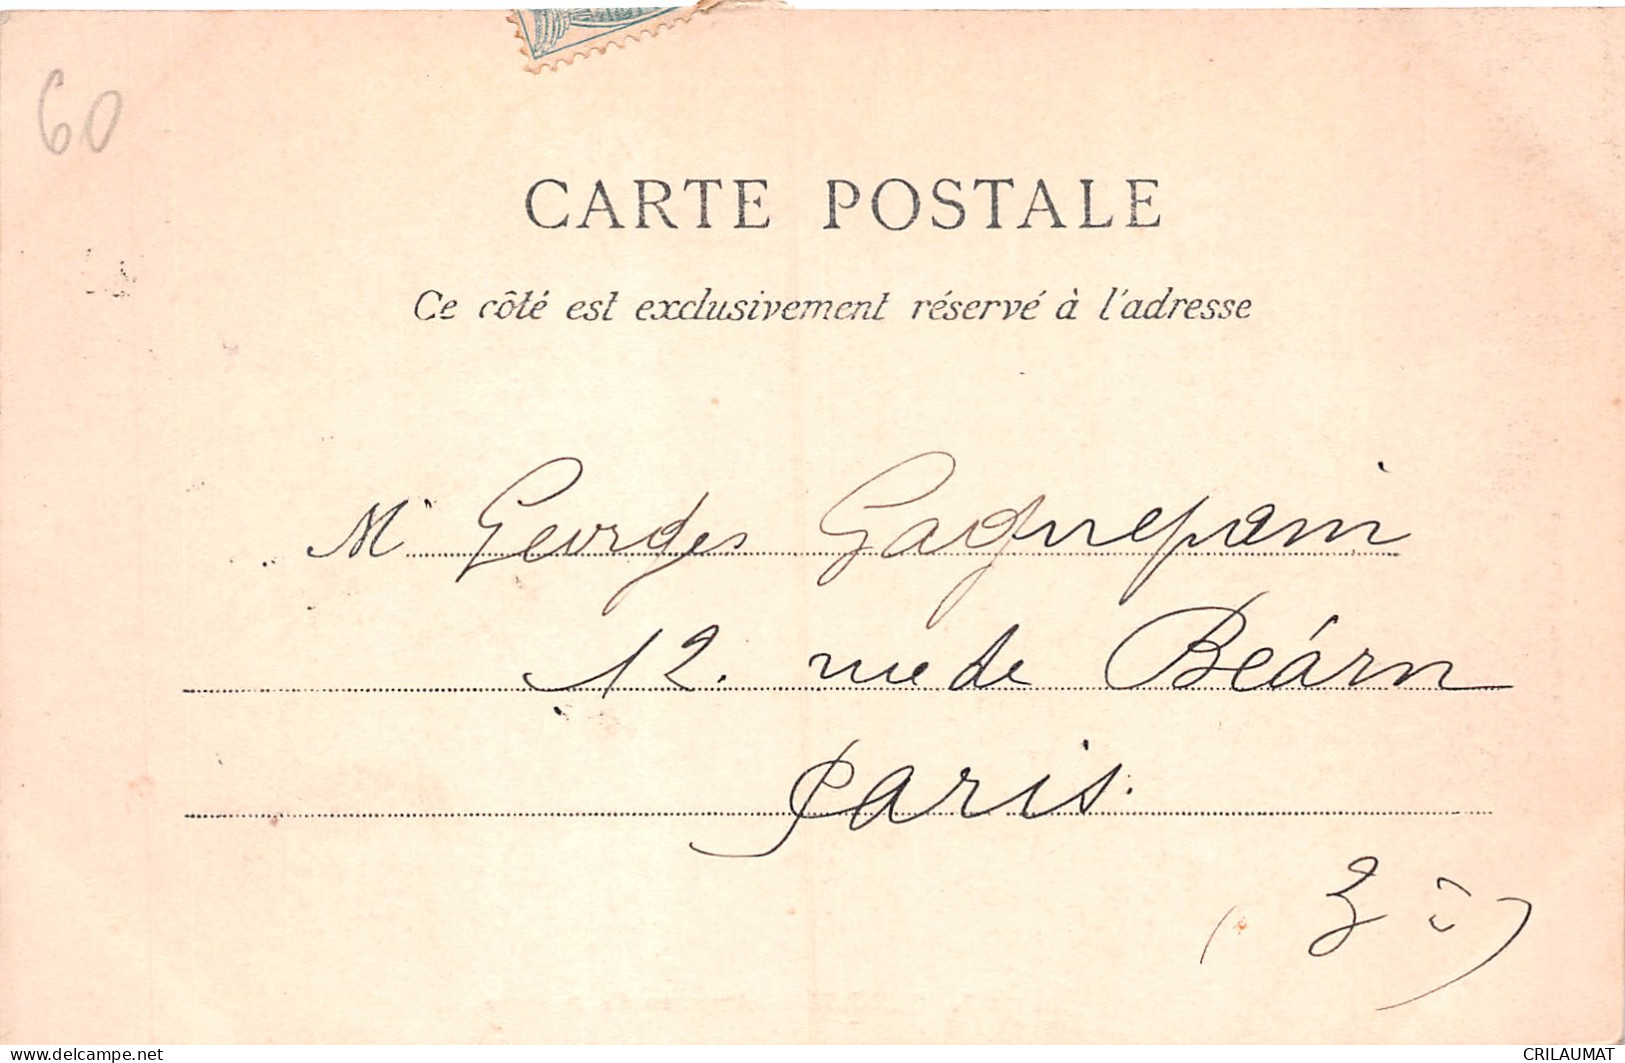 60
CARTE POSTALE
Ce côté est exclusivement réservé à l'adresse
Mr Georges Gagnepain
12. rue de Béarn
Paris.
( 3e )
www.delcampe.net
CRILAUMAT